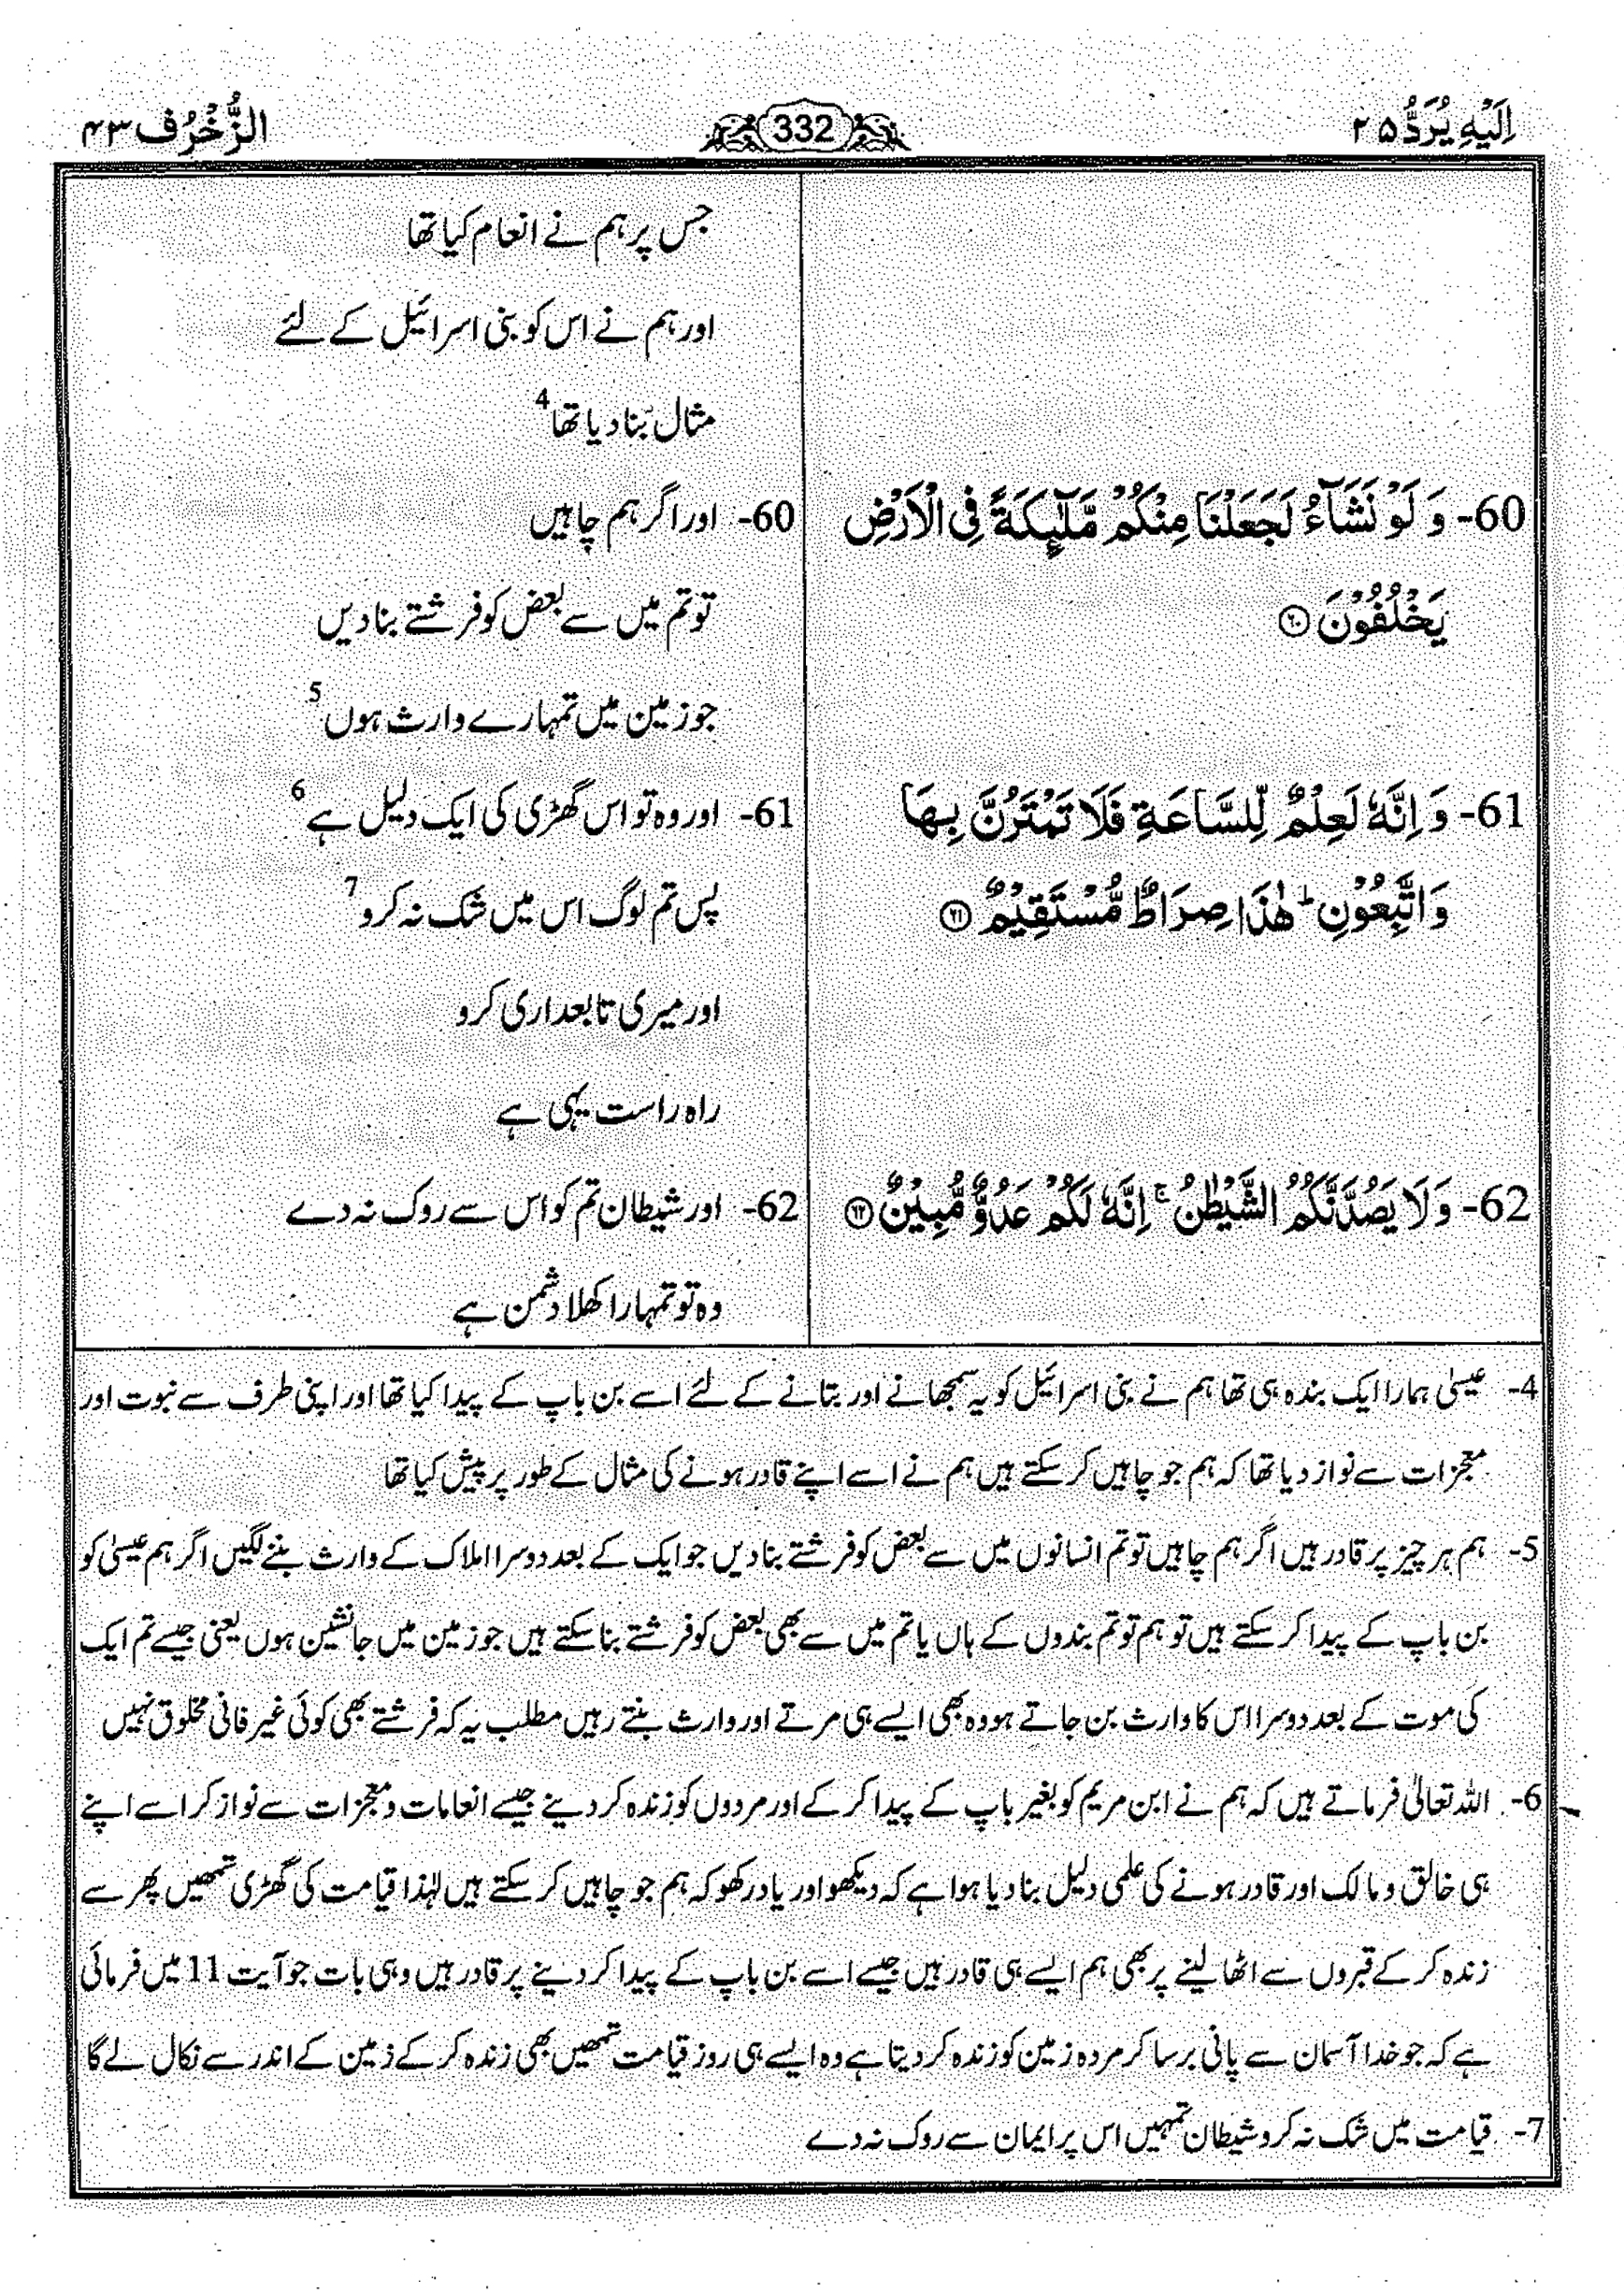 اِلَیْهِ یُرَدُّ ۲۵
332
الزُّخْرُف ۴۳
جس پر ہم نے انعام کیا تھا
اور ہم نے اس کو بنی اسرائیل کے لئے
مثال بنا دیا تھا 4
60- وَ لَوْ نَشَآءُ لَجَعَلْنَا مِنْكُمْ مَّلٰٓئِكَةً فِی الْاَرْضِ
یَخْلُفُوْنَ ۶۰
60- اور اگر ہم چاہیں
تو تم میں سے بعض کو فرشتے بنا دیں
جو زمین میں تمہارے وارث ہوں 5
61- وَ اِنَّهٗ لَعِلْمٌ لِّلسَّاعَةِ فَلَا تَمْتَرُنَّ بِهَا
وَ اتَّبِعُوْنِ ؕ هٰذَا صِرَاطٌ مُّسْتَقِیْمٌ ۶۱
61- اور وہ تو اس گھڑی کی ایک دلیل ہے 6
پس تم لوگ اس میں شک نہ کرو 7
اور میری تابعداری کرو
راہ راست یہی ہے
62- وَ لَا یَصُدَّنَّكُمُ الشَّیْطٰنُ ۚ اِنَّهٗ لَكُمْ عَدُوٌّ مُّبِیْنٌ ۶۲
62- اور شیطان تم کو اس سے روک نہ دے
وہ تو تمہارا کھلا دشمن ہے
4- عیسیٰ ہمارا ایک بندہ ہی تھا ہم نے بنی اسرائیل کو یہ سمجھانے اور بتانے کے لئے اسے بن باپ کے پیدا کیا تھا اور اپنی طرف سے نبوت اور
معجزات سے نواز دیا تھا کہ ہم جو چاہیں کر سکتے ہیں ہم نے اسے اپنے قادر ہونے کی مثال کے طور پر پیش کیا تھا
5- ہم ہر چیز پر قادر ہیں اگر ہم چاہیں تو تم انسانوں میں سے بعض کو فرشتے بنا دیں جو ایک کے بعد دوسرا املاک کے وارث بننے لگیں اگر ہم عیسیٰ کو
بن باپ کے پیدا کر سکتے ہیں تو ہم تو تم بندوں کے ہاں یا تم میں سے بھی بعض کو فرشتے بنا سکتے ہیں جو زمین میں جانشین ہوں یعنی جیسے تم ایک
کی موت کے بعد دوسرا اس کا وارث بن جاتے ہو وہ بھی ایسے ہی مرتے اور وارث بنتے رہیں مطلب یہ کہ فرشتے بھی کوئی غیر فانی مخلوق نہیں
6- اللہ تعالیٰ فرماتے ہیں کہ ہم نے ابن مریم کو بغیر باپ کے پیدا کر کے اور مردوں کو زندہ کر دینے جیسے انعامات و معجزات سے نواز کر اسے اپنے
ہی خالق و مالک اور قادر ہونے کی علمی دلیل بنا دیا ہوا ہے کہ دیکھو اور یاد رکھو کہ ہم جو چاہیں کر سکتے ہیں لہٰذا قیامت کی گھڑی تمھیں پھر سے
زندہ کر کے قبروں سے اٹھا لینے پر بھی ہم ایسے ہی قادر ہیں جیسے اسے بن باپ کے پیدا کر دینے پر قادر ہیں وہی بات جو آیت 11 میں فرمائی
ہے کہ جو خدا آسمان سے پانی برسا کر مردہ زمین کو زندہ کر دیتا ہے وہ ایسے ہی روز قیامت تمھیں بھی زندہ کر کے زمین کے اندر سے نکال لے گا
7- قیامت میں شک نہ کرو شیطان تمہیں اس پر ایمان سے روک نہ دے